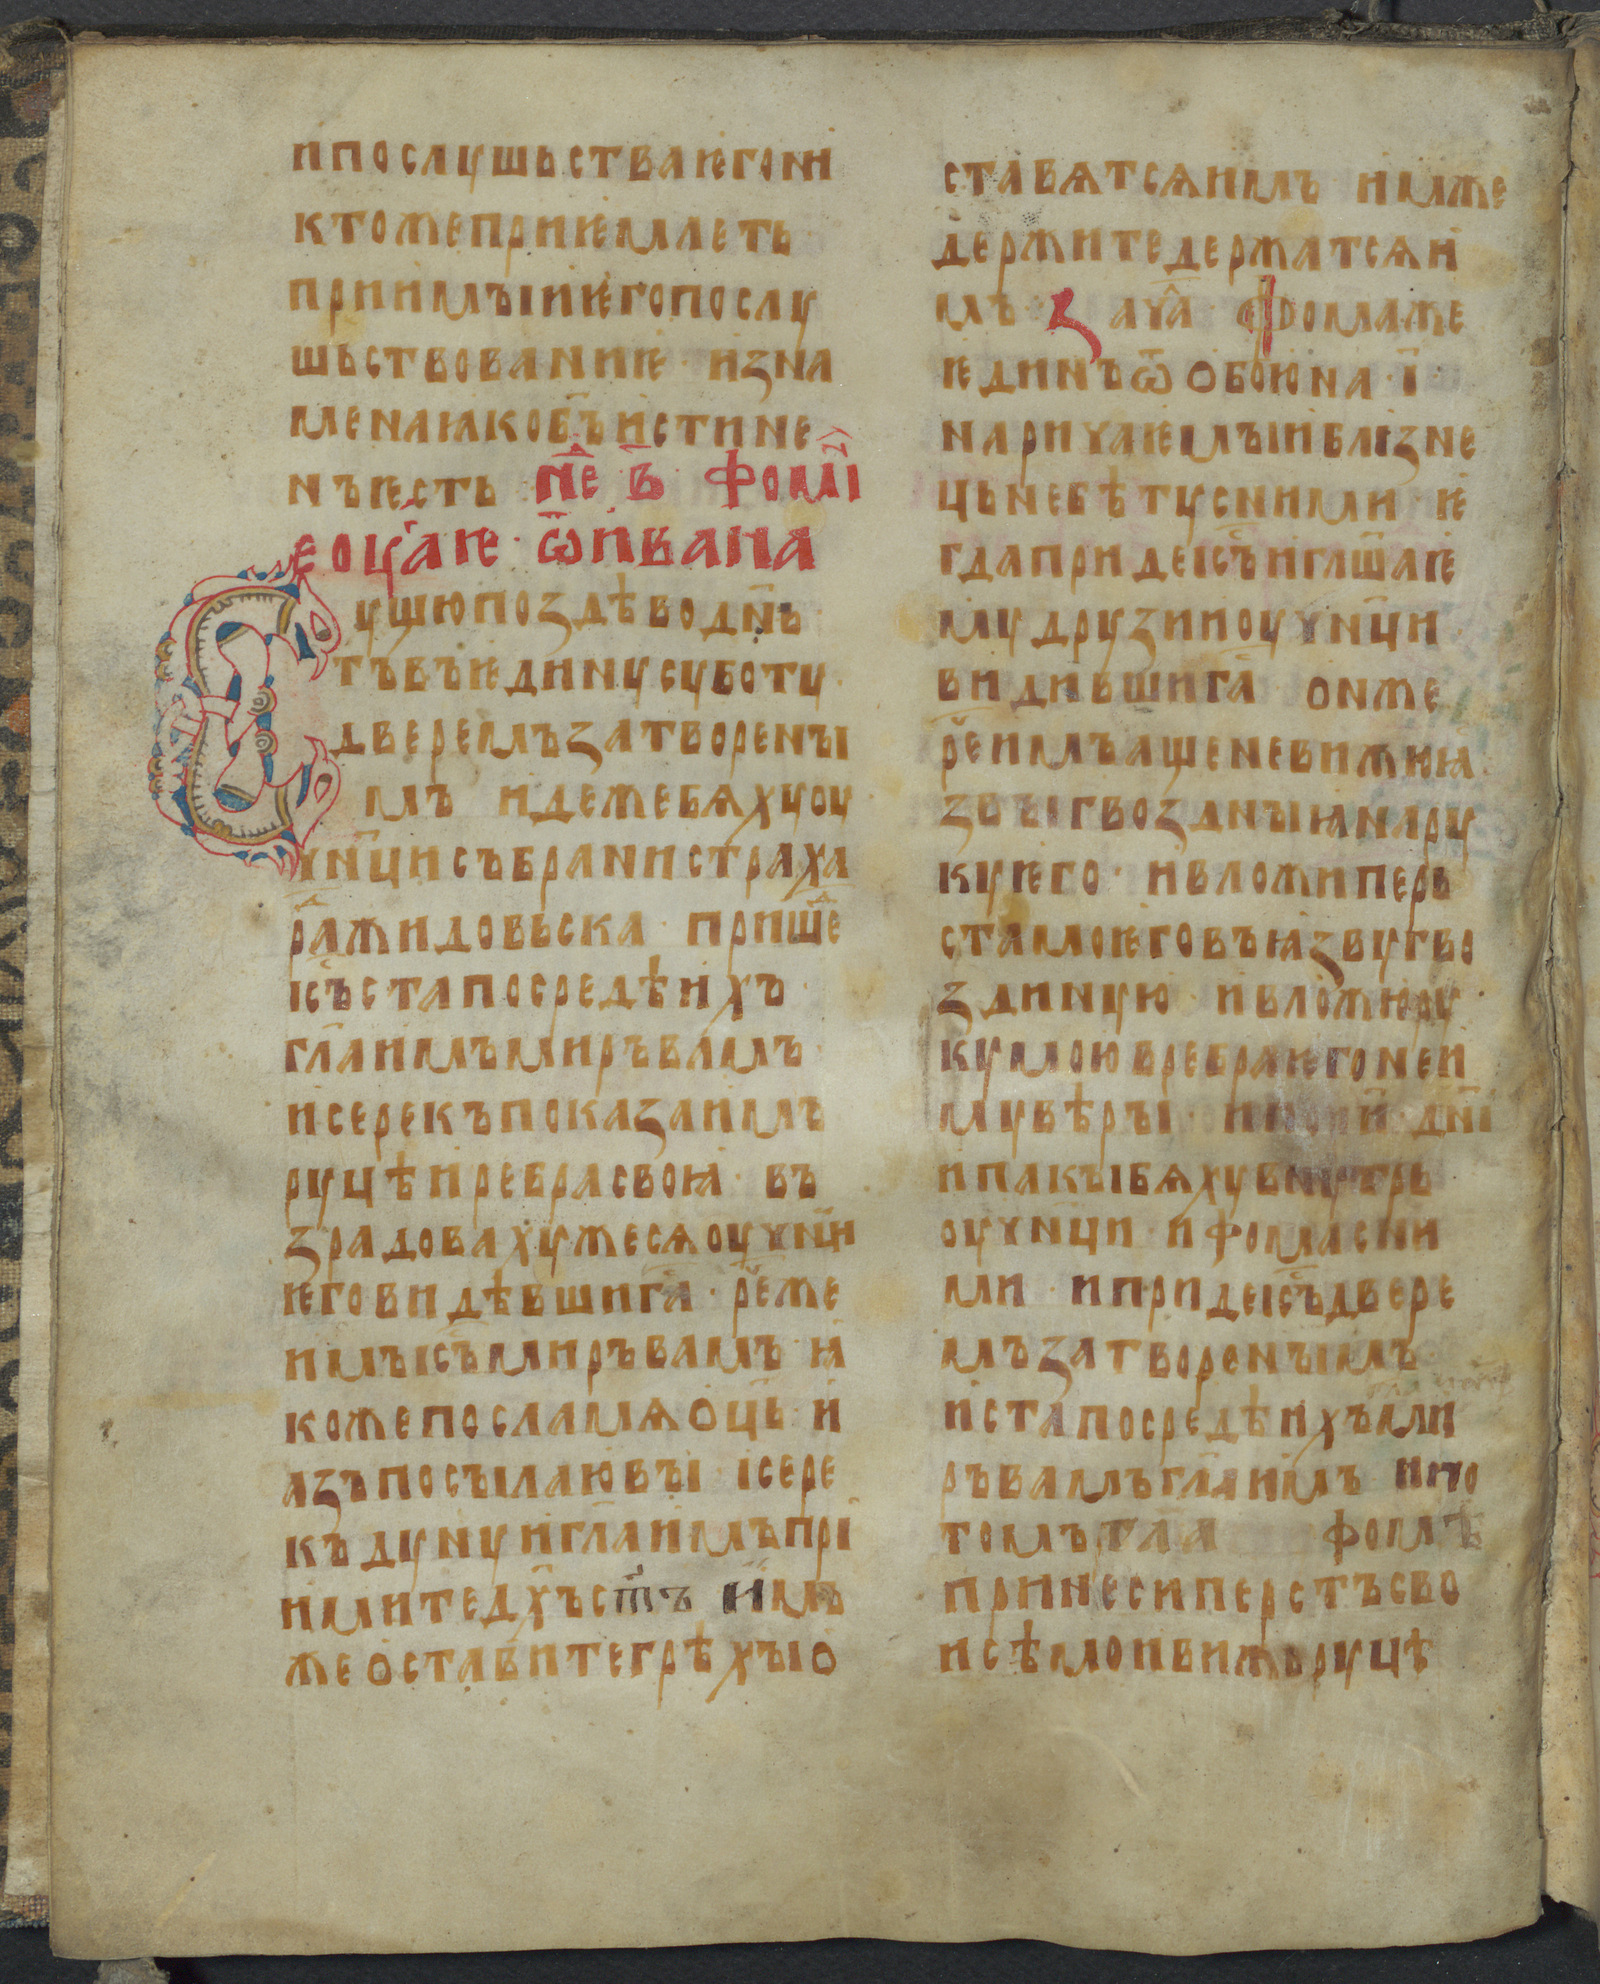 и послушьства ѥго ни
кто же приѥмлеть ·
приимъıи ѥго послу
шьствованиѥ · изна
мена ꙗко б҃ъ истине
нъ ѥсть нед҃ в҃ фомı
еоуа҃ѥ · ѿ ивана
Сущю поздѣ в о дн҃ь
тъ въ ѥдину суботу ·
дверемъ затворенъı
мъ идеже бяху оу
чн҃ци събрани страха
ради жидовьска · пришед
іс҃ъ ста посредѣ ихъ ·
гл҃а имъ миръ вамъ ·
и се рекъ показа имъ
руцѣ и ребра своꙗ · въ
зрадоваху же ся оуч҃нци
ѥго видѣвши г҃а · реч҃ же
имъ іс҃ъ миръ вамъ · ꙗ
коже посла мя оц҃ь · и
азъ посъıлаю въı і се ре
къ дуну и гл҃а имъ прі
имите дх҃ъ ст҃ъ имъ
же оставите грѣхъı о
ставятся имъ · имже
держите держатся и
мъ · За҃ча · Фома же
ѥдинъ ѿ обоюна · і҃ ·
наричаѥмъıи близне
ць не бѣ ту с ними · ѥ
гда приде іс҃ъ и гл҃ша ѥ
му друзии оучн҃ци ·
видивши г҃а онже
реч҃ имъ аще не вижю ꙗ
звъı гвозднъıꙗ на ру
ку ѥго · и вложи перь
ста моѥго въ ꙗзву гво
здиную · и вложю ру
ку мою в ребра ѥго не и
му вѣръı · и по и҃ дн҃і
и пакъı бяху внутрь
оучн҃ци · и фома с ни
ми · и приде іс҃ъ двере
мъ затворенъıмъ ·
и ста посредѣ ихъ ми
ръ вамъ гл҃а имъ и по
томъ гл҃а фомѣ
принеси перстъ сво
и сѣмо и вижь руцѣ